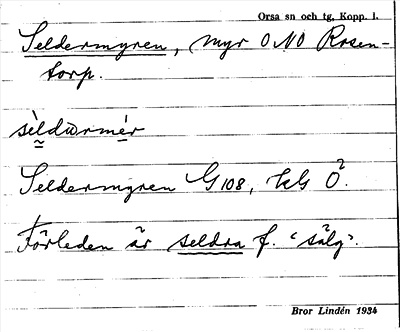 Orsa sn och tg, Kopp. l.
Seldermyren, myr O NO Rosen-
torp.
sèldœrmér
Seldermyren G 108, kG Ö?.
Förleden är seldra f. "sälg".
Bror Lindén 1934